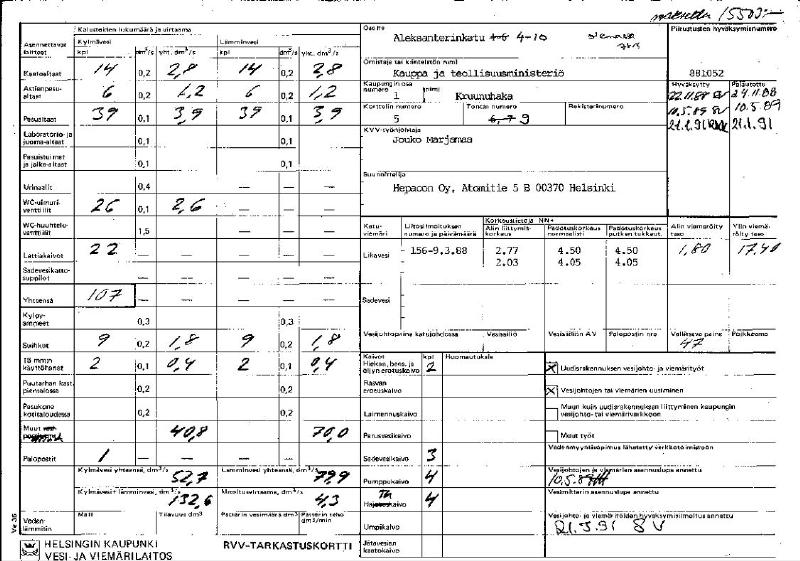 maksettu 15500:-
Kalusteiden lukumäärä ja virtaama
Asennettavat laitteet
Kylmävesi
Lämminvesi
kpl dm³/s yht. dm³/s kpl dm³/s yht. dm³/s
Keittoaltaat 14 0,2 2,8 14 0,2 2,8
Astianpesualtaat 6 0,2 1,2 6 0,2 1,2
Pesualtaat 39 0,1 3,9 39 0,1 3,9
Laboratorio- ja juoma-altaat 0,1 0,1
Pesuistuimet ja jalka-altaat 0,1 0,1
Urinaalit 0,4 — — —
WC-uimuriventtiilit 26 0,1 2,6 — — —
WC-huuhteluventtiilit 1,5 — — —
Lattiakaivot 22 — — — — —
Sadevesikattosuppilot — — — — —
Yhteensä 107 — — — — —
Kylpyammeet 0,3 0,3
Suihkut 9 0,2 1,8 9 0,2 1,8
15 mm:n käyttöhanat 2 0,2 0,4 2 0,1 0,4
Puutarhan kast. pientalossa 0,2
Pesukone kotitaloudessa 0,2 0,2
Muut 40,8 70,0
Palopostit 1 — — — — —
Kylmävesi yhteensä, dm³/s 52,7
Lämminvesi yhteensä, dm³/s 79,9
Kylmävesi+lämminvesi, dm³/s 132,6
Mitoitusvirtaama, dm³/s 4,3
Vedenlämmitin
Malli
Tilavuus dm³
Patterin vesimäärä dm³
Patterin teho dm³/min
Ve 35
HELSINGIN KAUPUNKI
VESI- JA VIEMÄRILAITOS
RVV-TARKASTUSKORTTI
Osoite
Aleksanterinkatu 4-6 4-10
Omistaja tai kiinteistön nimi
Kauppa ja teollisuusministeriö
Kaupungin osa numero 1 nimi Kruunuhaka
Korttelin numero 5
Tontin numero 6,7 9
Rekisterinumero
KVV-työnjohtaja
Jouko Marjamaa
Suunnittelija
Hepacon Oy, Atomitie 5 B 00370 Helsinki
Piirustusten hyväksymisnumero
881052
Hyväksytty
Palautettu
22.11.88
24.11.88
10.5.89
10.5.89
21.1.91
21.1.91
Katuviemäri
Liitosilmoituksen numero ja päivämäärä
Korkeustietoja NN+
Alin liittymiskorkeus
Padotuskorkeus normaalisti
Padotuskorkeus putken tukkeut.
Alin viemäröity taso
Ylin viemäröity taso
Likavesi 156-9.3.88 2.77 4.50 4.50 1,80 17,40
2.03 4.05 4.05
Sadevesi
Vesijohtopaine katujohdossa
Vesisäiliö
Vesisäiliön A.V
Palopostin nro
Vallitseva paine
47
Paikkeama
Kaivot kpl Huomautuksia
Hiekan, bens. ja öljyn erotuskaivo 2
Rasvan erotuskaivo
Laimennuskaivo
Perusvesikaivo
Sadevesikaivo 3
Pumppukaivo 4
Tk
Hajotuskaivo 4
Umpikaivo
Jätavesian kaatokaivo
X Uudisrakennuksen vesijohto- ja viemärityöt
X Vesijohtojen tai viemärien uusiminen
Muun kuin uudisrakennuksen liittyminen kaupungin vesijohto- tai viemäriverkkoon
Muut työt
Vedenmyyntisopimus lähetetty verkkotoimistoon
Vesijohtojen ja viemärien asennuslupa annettu
10.5.89
Vesimittarin asennuslupa annettu
Vesijohto- ja viemäritöiden hyväksymisilmoitus annettu
21.3.91